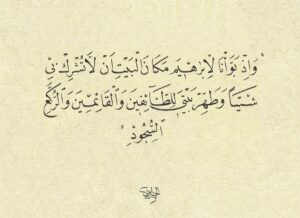 وَإِذْ بَوَّأْنَا لِإِبْرَٰهِيمَ مَكَانَ الْبَيْتِ أَن لَّا تُشْرِكْ بِي
شَيْئًا وَطَهِّرْ بَيْتِيَ لِلطَّائِفِينَ وَالْقَائِمِينَ وَالرُّكَّعِ
السُّجُودِ